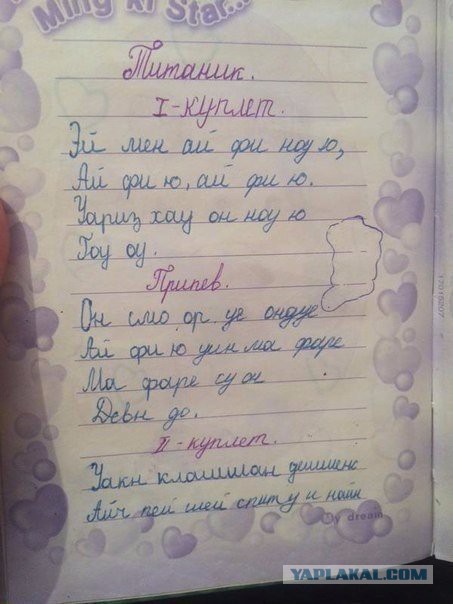 Ming ki Star...
Титаник.
I-куплет.
Эй мен ай фи ноу ю,
Ай фи ю, ай фи ю.
Уариз хау он ноу ю
Гоу оу.
Припев.
Он смо ор уе ондуе
Ай фи ю уин ма фаре
Ма фаре су он
Девн до.
II-куплет.
Уакн клашшан дешшенс
Айч пей шей спиту и найн
My dream
17015207
YAPLAKAL.COM